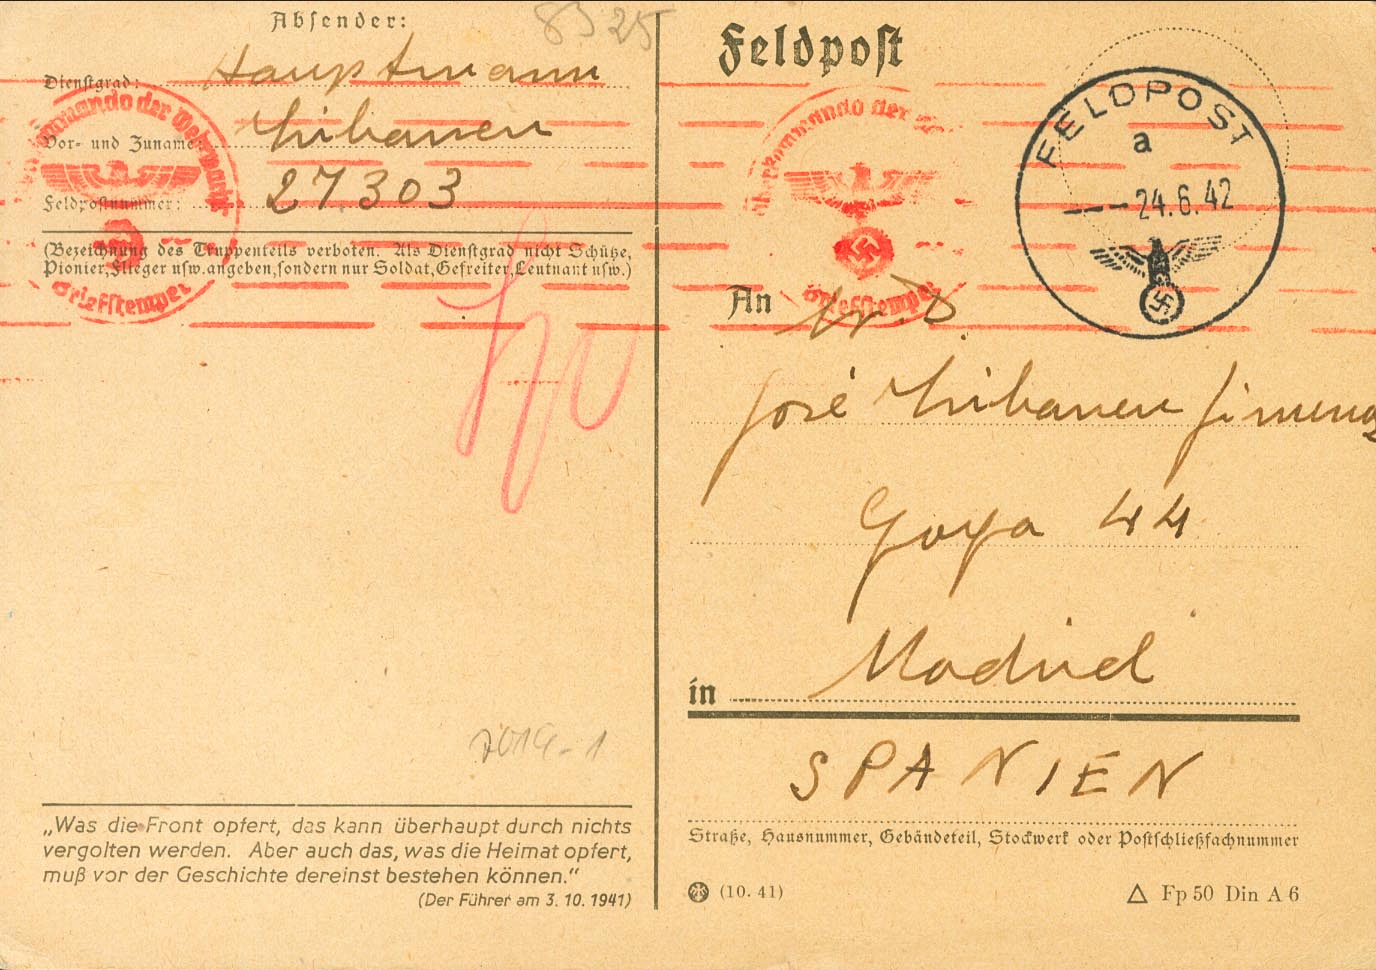 Absender:
8325
Dienstgrad: Hauptmann
Vor- und Zuname:
Feldpostnummer: 27.303
(Bezeichnung des Truppenteils verboten. Als Dienstgrad nicht Schütze,
Pionier, Flieger usw. angeben, sondern nur Soldat, Gefreiter, Leutnant usw.)
kommando der Wehrmacht
Briefstempel
7019-1
„Was die Front opfert, das kann überhaupt durch nichts
vergolten werden. Aber auch das, was die Heimat opfert,
muß vor der Geschichte dereinst bestehen können.“
(Der Führer am 3. 10. 1941)
Feldpost
kommando der
Briefstempel
FELDPOST
a
24.6.42
An Sr. D
José
Goya 44
in Madrid
SPANIEN
Straße, Hausnummer, Gebäudeteil, Stockwerk oder Postschließfachnummer
(10. 41)
Fp 50 Din A 6